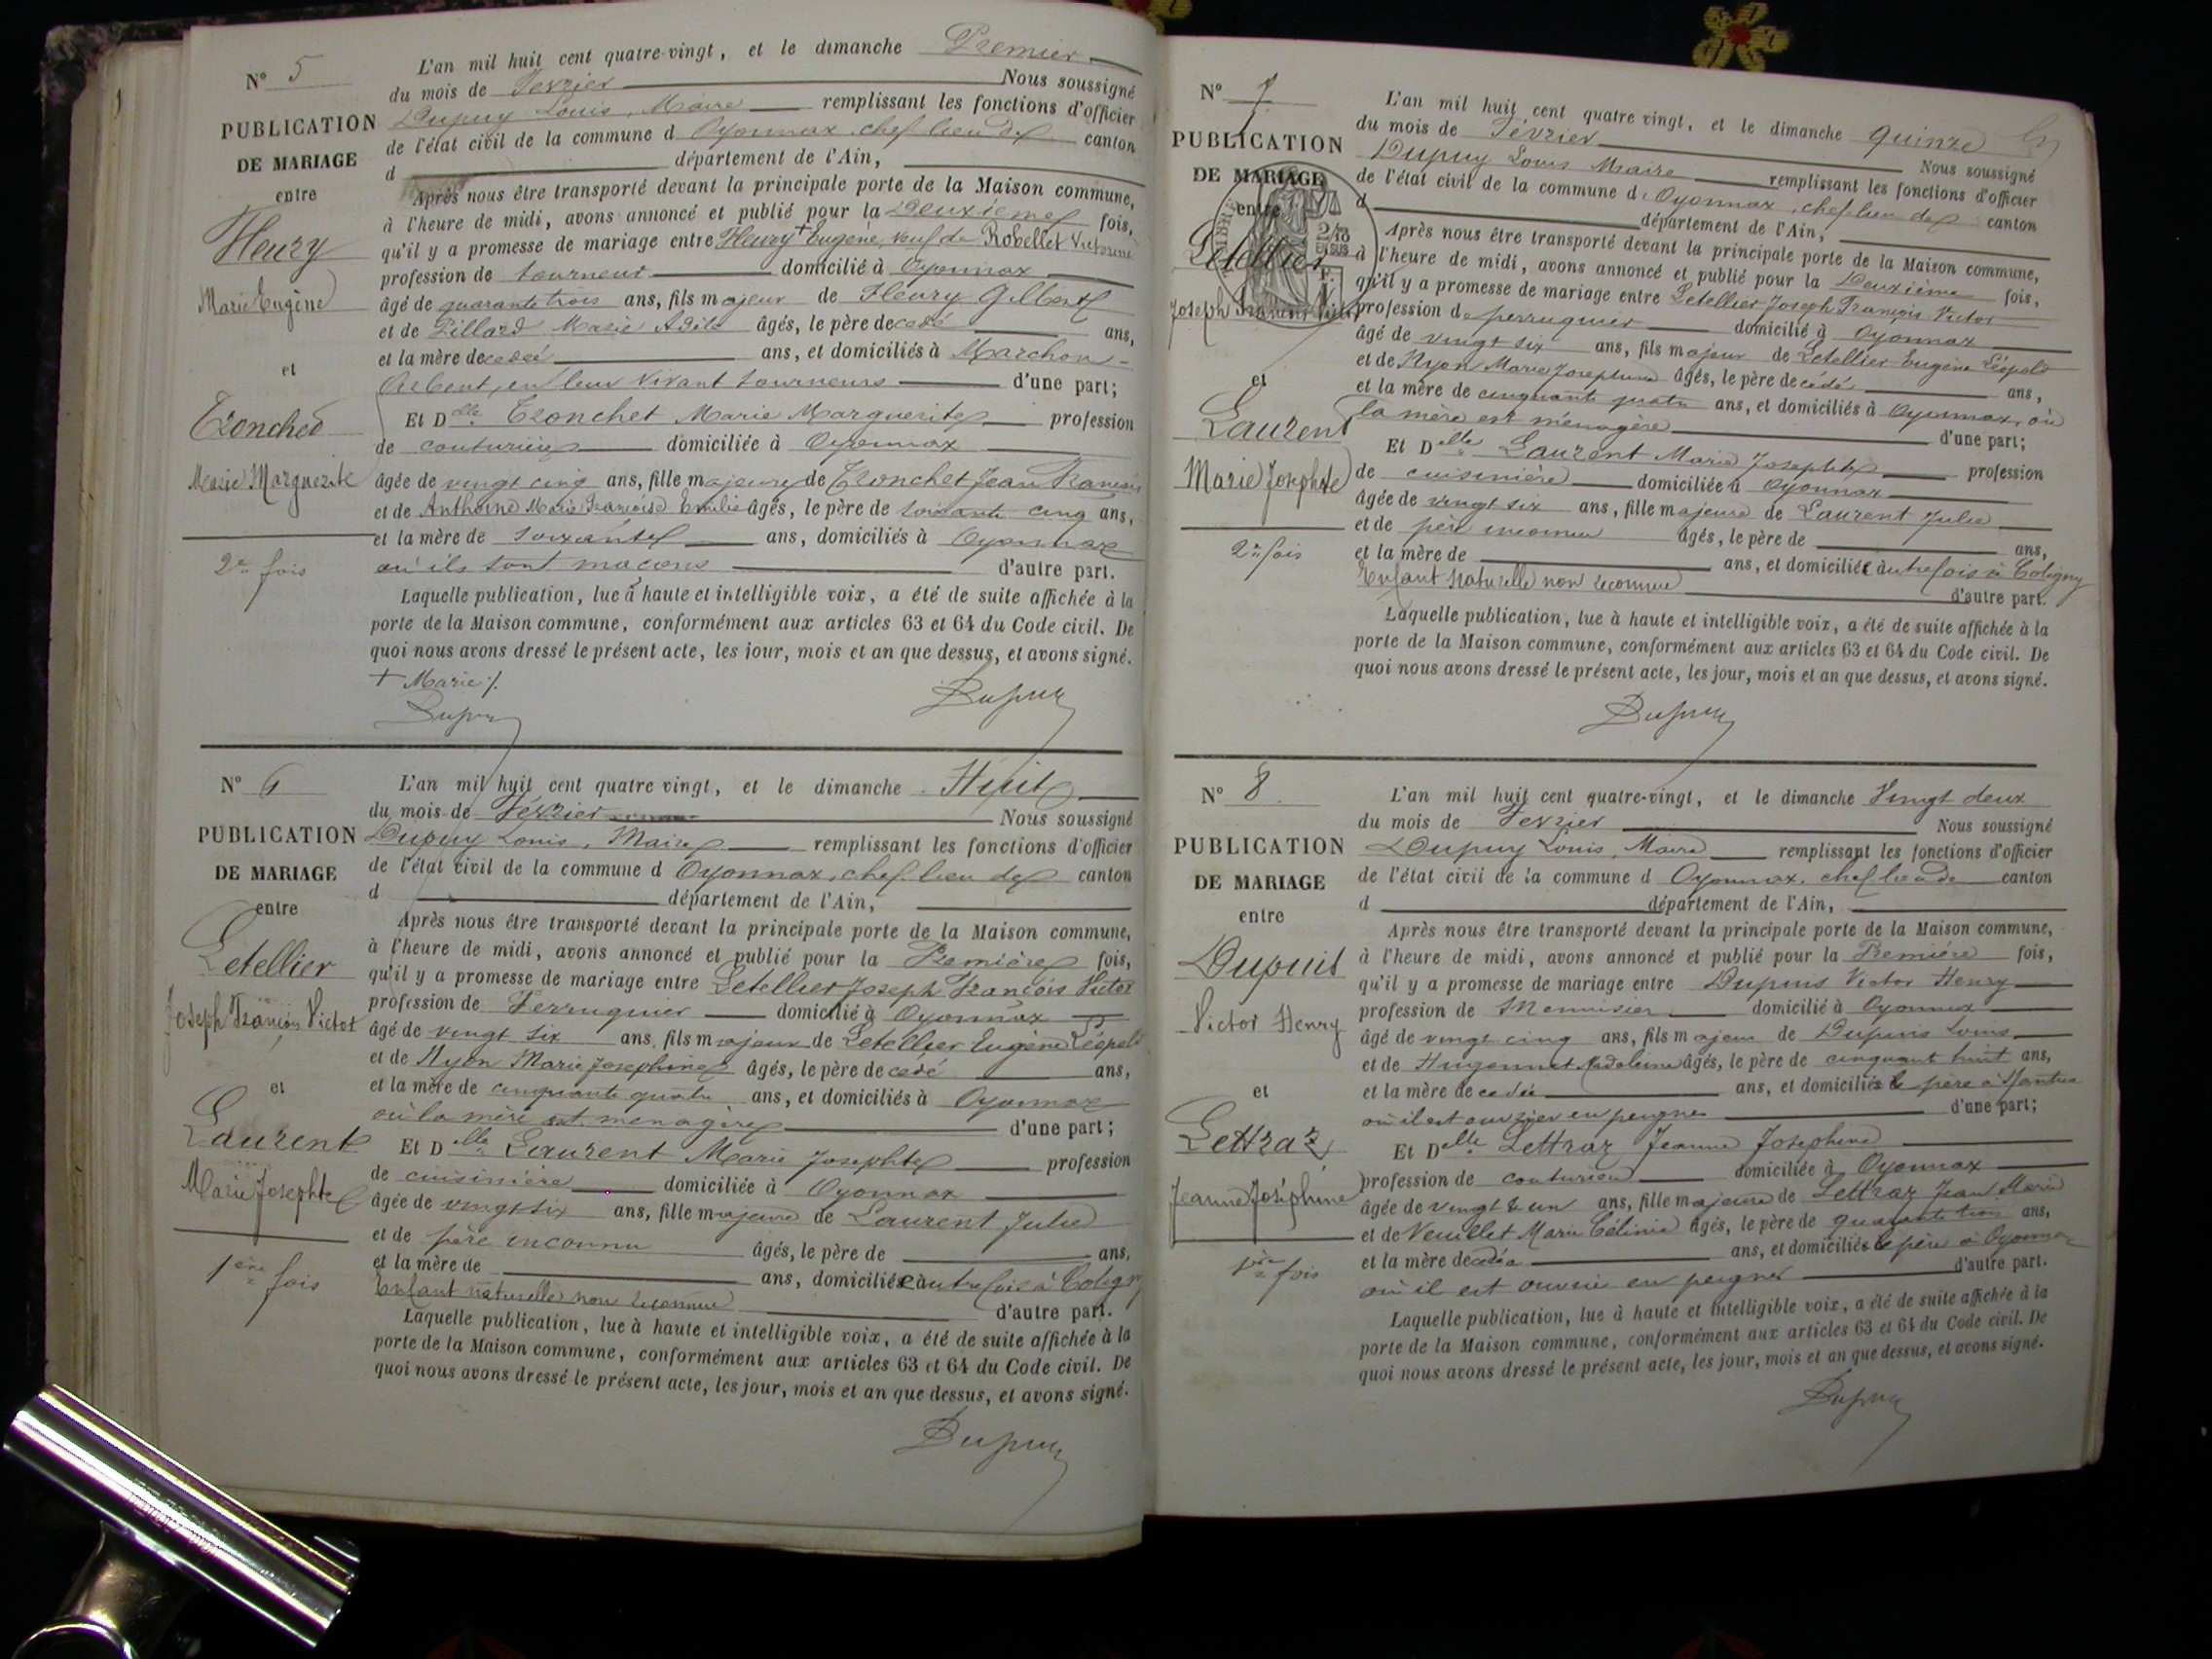 N° 5
PUBLICATION
DE MARIAGE
entre
Fleury
Marie Eugène
et
Tronchet
Marie Marguerite
2e fois
L'an mil huit cent quatre-vingt, et le dimanche Premier
du mois de Février Nous soussigné
Dupuy Louis, Maire remplissant les fonctions d'officier
de l'état civil de la commune d Oyonnax, chef lieu de canton
d département de l'Ain,
Après nous être transporté devant la principale porte de la Maison commune,
à l'heure de midi, avons annoncé et publié pour la Deuxième fois,
qu'il y a promesse de mariage entre Fleury + Eugène, veuf de Robellet Victorine
profession de tourneur domicilié à Oyonnax
âgé de quarante trois ans, fils majeur de Fleury Gilbert
et de Pillard Marie Adèle âgés, le père decedé ans,
et la mère decedeé ans, et domiciliés à Marchon-
Arbent, en leur vivant tourneurs d'une part;
Et Dlle Tronchet Marie Marguerite profession
de couturière domiciliée à Oyonnax
âgée de vingt cinq ans, fille majeure de Tronchet Jean François
et de Anthoine Marie Françoise Emilie âgés, le père de soixante cinq ans,
et la mère de soixante ans, domiciliés à Oyonnax
où ils sont maçons d'autre part.
Laquelle publication, lue à haute et intelligible voix, a été de suite affichée à la
porte de la Maison commune, conformément aux articles 63 et 64 du Code civil. De
quoi nous avons dressé le présent acte, les jour, mois et an que dessus, et avons signé.
+ Marie ./.
Dupuy Dupuy
N° 6
PUBLICATION
DE MARIAGE
entre
Letellier
Joseph François Victor
et
Laurent
Marie Josephte
1ère fois
L'an mil huit cent quatre vingt, et le dimanche Huit
du mois de Février Nous soussigné
Dupuy Louis, Maire remplissant les fonctions d'officier
de l'état civil de la commune d Oyonnax, chef lieu de canton
d département de l'Ain,
Après nous être transporté devant la principale porte de la Maison commune,
à l'heure de midi, avons annoncé et publié pour la Première fois,
qu'il y a promesse de mariage entre Letellier Joseph François Victor
profession de Perruquier domicilié à Oyonnax
âgé de vingt six ans, fils majeur de Letellier Eugène Léopold
et de Nyon Marie Josephine âgés, le père decedé ans,
et la mère de cinquante quatre ans, et domiciliés à Oyonnax
où la mère est ménagère d'une part;
Et Delle Laurent Marie Josephte profession
de cuisinière domiciliée à Oyonnax
âgée de vingt six ans, fille majeure de Laurent Julie
et de père inconnu âgés, le père de ans,
et la mère de ans, domiciliée autrefois à Coligny
Enfant naturelle non reconnue d'autre part.
Laquelle publication, lue à haute et intelligible voix, a été de suite affichée à la
porte de la Maison commune, conformément aux articles 63 et 64 du Code civil. De
quoi nous avons dressé le présent acte, les jour, mois et an que dessus, et avons signé.
Dupuy
N° 7
PUBLICATION
DE MARIAGE
entre
Letellier
Joseph François Victor
et
Laurent
Marie Josephte
2e fois
L'an mil huit cent quatre vingt, et le dimanche quinze
du mois de Février Nous soussigné
Dupuy Louis Maire remplissant les fonctions d'officier
de l'état civil de la commune d Oyonnax, chef lieu de canton
d département de l'Ain,
Après nous être transporté devant la principale porte de la Maison commune,
à l'heure de midi, avons annoncé et publié pour la Deuxième fois,
qu'il y a promesse de mariage entre Letellier Joseph François Victor
profession de perruquier domicilié à Oyonnax
âgé de vingt six ans, fils majeur de Letellier Eugène Léopold
et de Nyon Marie Josephine âgés, le père decédé ans,
et la mère de cinquante quatre ans, et domiciliés à Oyonnax, où
la mère est ménagère d'une part;
Et Delle Laurent Marie Josephte profession
de cuisinière domiciliée à Oyonnax
âgée de vingt six ans, fille majeure de Laurent Julie
et de père inconnu âgés, le père de ans,
et la mère de ans, et domiciliée autrefois à Coligny
Enfant Naturelle non reconnue d'autre part.
Laquelle publication, lue à haute et intelligible voix, a été de suite affichée à la
porte de la Maison commune, conformément aux articles 63 et 64 du Code civil. De
quoi nous avons dressé le présent acte, les jour, mois et an que dessus, et avons signé.
Dupuy
N° 8
PUBLICATION
DE MARIAGE
entre
Dupuis
Victor Henry
et
Lettraz
Jeanne Joséphine
1ère fois
L'an mil huit cent quatre-vingt, et le dimanche Vingt deux
du mois de Fevrier Nous soussigné
Dupuy Louis, Maire remplissant les fonctions d'officier
de l'état civil de la commune d Oyonnax, chef lieu de canton
d département de l'Ain,
Après nous être transporté devant la principale porte de la Maison commune,
à l'heure de midi, avons annoncé et publié pour la Première fois,
qu'il y a promesse de mariage entre Dupuis Victor Henry
profession de Menuisier domicilié à Oyonnax
âgé de vingt cinq ans, fils majeur de Dupuis Louis
et de Hugonnet Madeleine âgés, le père de cinquante huit ans,
et la mère decedée ans, et domiciliés le père à Nantua
où il est ouvrier en peignes d'une part;
Et Delle Lettraz Jeanne Josephine
profession de couturière domiciliée à Oyonnax
âgée de vingt & un ans, fille majeure de Lettraz Jean Marie
et de Veuillet Marie Célinie âgés, le père de quarante trois ans,
et la mère decedée ans, et domiciliés le père à Oyonnax
où il est ouvrier en peignes d'autre part.
Laquelle publication, lue à haute et intelligible voix, a été de suite affichée à la
porte de la Maison commune, conformément aux articles 63 et 64 du Code civil. De
quoi nous avons dressé le présent acte, les jour, mois et an que dessus, et avons signé.
Dupuy